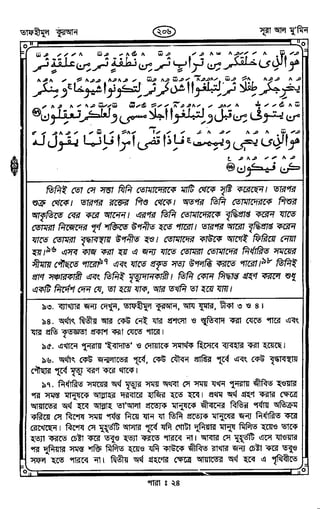 তাফহীমুল কুরআন
২০৬
সূরা আল মু'মিন
هُوَ الَّذِى خَلَقَكُمْ مِّنْ تُرَابٍ ثُمَّ مِنْ نُّطْفَةٍ ثُمَّ مِنْ عَلَقَةٍ ثُمَّ
يُخْرِجُكُمْ طِفْلًا ثُمَّ لِتَبْلُغُوْا أَشُدَّكُمْ ثُمَّ لِتَكُوْنُوْا شُيُوْخًا ۚ وَمِنْكُمْ
مَّنْ يُّتَوَفّٰى مِنْ قَبْلُ وَلِتَبْلُغُوْا أَجَلًا مُّسَمًّى وَّلَعَلَّكُمْ تَعْقِلُوْنَ ۝
هُوَ الَّذِى يُحْىٖ وَيُمِيْتُ ۚ فَإِذَا قَضٰى أَمْرًا فَإِنَّمَا يَقُوْلُ لَهٗ
كُنْ فَيَكُوْنُ ۝
তিনিই তো সে সত্তা যিনি তোমাদেরকে মাটি থেকে সৃষ্টি করেছেন। তারপর
শুক্র থেকে। তারপর রক্তের পিণ্ড থেকে। অতপর তিনি তোমাদেরকে শিশুর
আকৃতিতে বের করে আনেন। এরপর তিনি তোমাদেরকে বৃদ্ধিপ্রাপ্ত করেন যাতে
তোমরা নিজেদের পূর্ণ শক্তিতে উপনীত হতে পারো। তারপর আরো বৃদ্ধিপ্রাপ্ত করেন
যাতে তোমরা বৃদ্ধাবস্থায় উপনীত হও। তোমাদের কাউকে আগেই ফিরিয়ে নেয়া
হয়।৯৬ এসব কাজ করা হয় এ জন্য যাতে তোমরা তোমাদের নির্ধারিত সময়ের
সীমায় পৌছতে পারো৯৭ এবং যাতে প্রকৃত সত্য উপলব্ধি করতে পারো।৯৮ তিনিই
প্রাণ সঞ্চারকারী এবং তিনিই মৃত্যুদানকারী। তিনি কোন সিদ্ধান্ত গ্রহণ করলে শুধু
একটি নির্দেশ দেন যে, তা হয়ে যাক, আর তখনি তা হয়ে যায়।
৯৩. ব্যাখ্যার জন্য দেখুন, তাফহীমুল কুরআন, আয যুমার, টীকা ৩ ও ৪।
৯৪. অর্থাৎ দ্বিতীয় আর কেউ নেই যার প্রশংসা ও স্তুতিবাদ করা যেতে পারে এবং
যার প্রতি কৃতজ্ঞতা প্রকাশ করা যেতে পারে।
৯৫. এখানে পুনরায় 'ইবাদাত' ও দোয়াকে সমার্থক হিসেবে ব্যবহার করা হয়েছে।
৯৬. অর্থাৎ কেউ জন্মলাভের পূর্বে, কেউ যৌবন প্রাপ্তির পূর্বে এবং কেউ বৃদ্ধাবস্থায়
পৌছার পূর্বে মৃত্যু বরণ করে থাকে।
৯৭. নির্ধারিত সময়ের অর্থ মৃত্যুর সময় অথবা সে সময় যখন পুনরায় জীবিত হওয়ার
পর সমস্ত মানুষকে আল্লাহর দরবারে হাজির হতে হবে। প্রথম অর্থ গ্রহণ করার ক্ষেত্রে
আয়াতের অর্থ হবে আল্লাহ তা'আলা প্রত্যেক মানুষকে জীবনের বিভিন্ন পর্যায় অতিক্রম
করিয়ে সে বিশেষ সময় পর্যন্ত নিয়ে যান যা তিনি প্রত্যেক মানুষের জন্য নির্ধারিত করে
রেখেছেন। বিশেষ সে মুহূর্তটি আসার পূর্বে যদি গোটা দুনিয়ার মানুষ মিলিত হয়েও তাকে
হত্যা করতে চেষ্টা করে তবুও হত্যা করতে পারবে না। আবার সে মুহূর্তটি এসে যাওয়ার
পর দুনিয়ার সমস্ত শক্তি মিলিত হয়েও যদি কাউকে জীবিত রাখার জন্য চেষ্টা করে তবুও
সফল হতে পারবে না। দ্বিতীয় অর্থ গ্রহণের ক্ষেত্রে আয়াতের অর্থ হবে এ পৃথিবীতে
পারা : ২৪